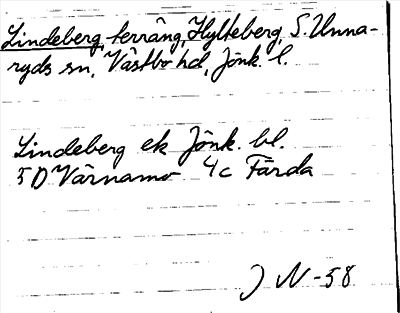 Lindeberg, terräng, Hylteberg, S. Unna-
ryds sn, Västbo hd, Jönk. l.
Lindeberg ek Jönk. bl.
5 D Värnamo 4c Färda
J N -58